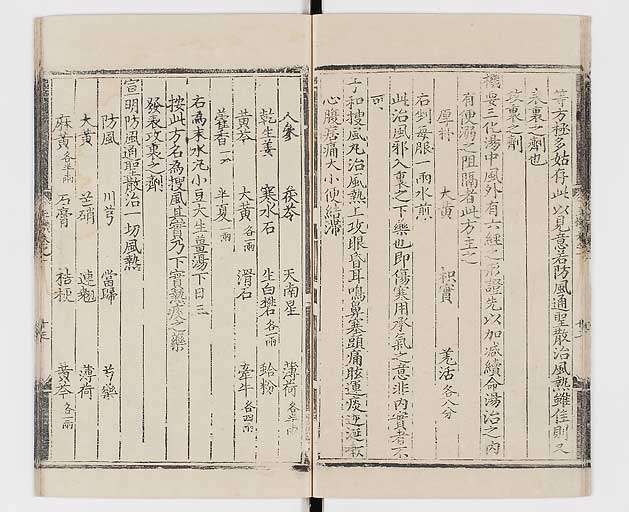 等方極多姑存此以見意若防風通聖散治風熱雖佳則又
表裏之劑也
攻裏之劑
機要三化湯中風外有六經之形證先以加減續命湯治之內
有便溺之阻隔者此方主之
厚朴 大黃 枳實 羌活各八分
右剉每服一兩水煎
此治風邪入裏之下藥也即傷寒用承氣之意非內實者不
可
子和搜風丸治風熱上攻眼昏耳鳴鼻塞頭痛眩運痰逆涎嗽
心腹㽲痛大小便結滯
人參 茯苓 天南星 薄荷各半兩
乾生姜 寒水石 生白礬各一兩 蛤粉
黃芩 大黃各二兩 滑石 牽牛各四兩
藿香一 半夏一兩
右爲末水丸小豆大生薑湯下日三
按此方名爲搜風其實乃下實熱痰之藥
發表攻裏之劑
宣明防風通聖散治一切風熱
防風 川芎 當歸 芍藥
大黃 芒硝 連翹 薄荷
麻黃各半兩 石膏 桔梗 黃芩各一兩